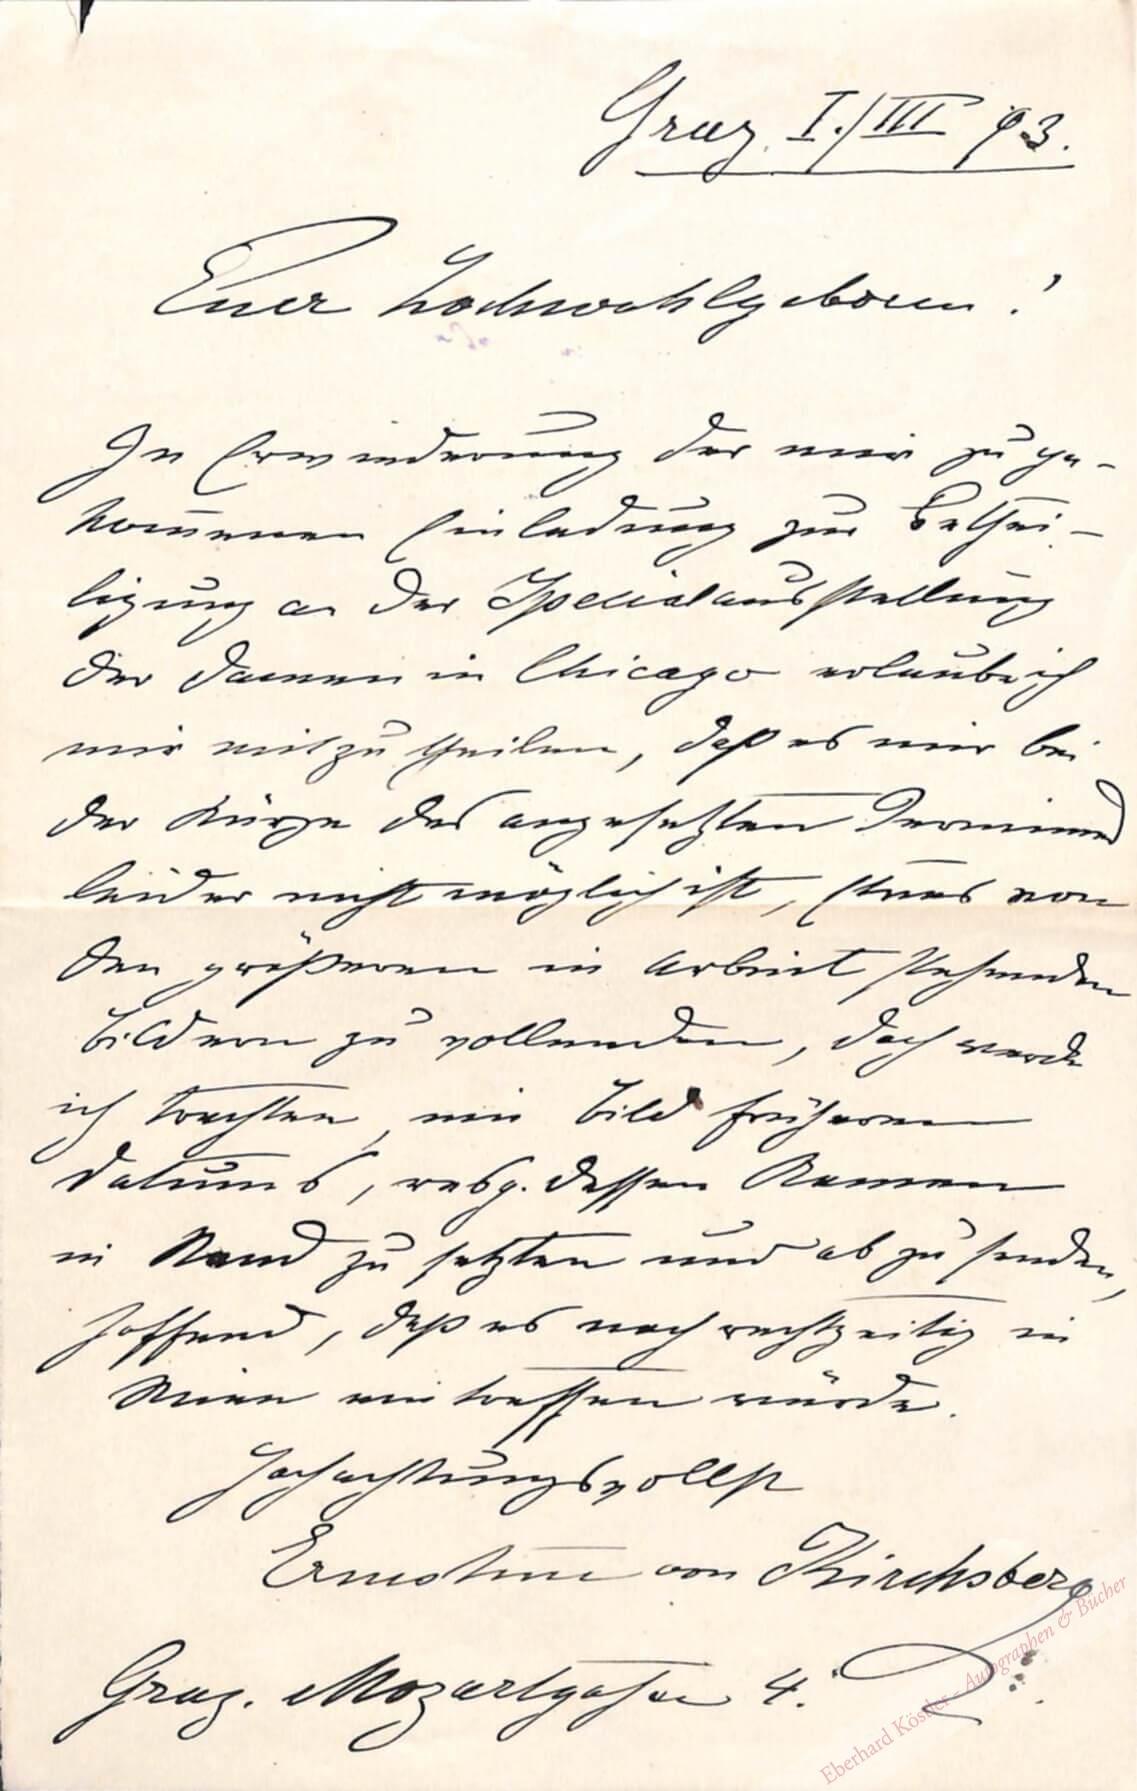 Graz, I./III 93.
Euer Hochwohlgeboren!
In Erwiederung der mir zu ge-
kommenen Einladung zur Bethei-
ligung an der Specialausstellung
der Damen in Chicago erlaube ich
mir mitzutheilen, daß es mir bei
der Kürze des angesetzten Termines
leider nicht möglich ist, Etwas von
den größeren in Arbeit stehenden
Bildern zu vollenden, doch werde
ich trachten, ein Bild früheren
Datums, resp. dessen Rahmen
in Stand zu setzten und abzusenden,
hoffend, daß es noch rechtzeitig in
Wien eintreffen würde.
Hochachtungsvollst
Ernestine von Kirchsberg
Graz. Mozartgasse 4.
Eberhard Köstler - Autographen & Bücher